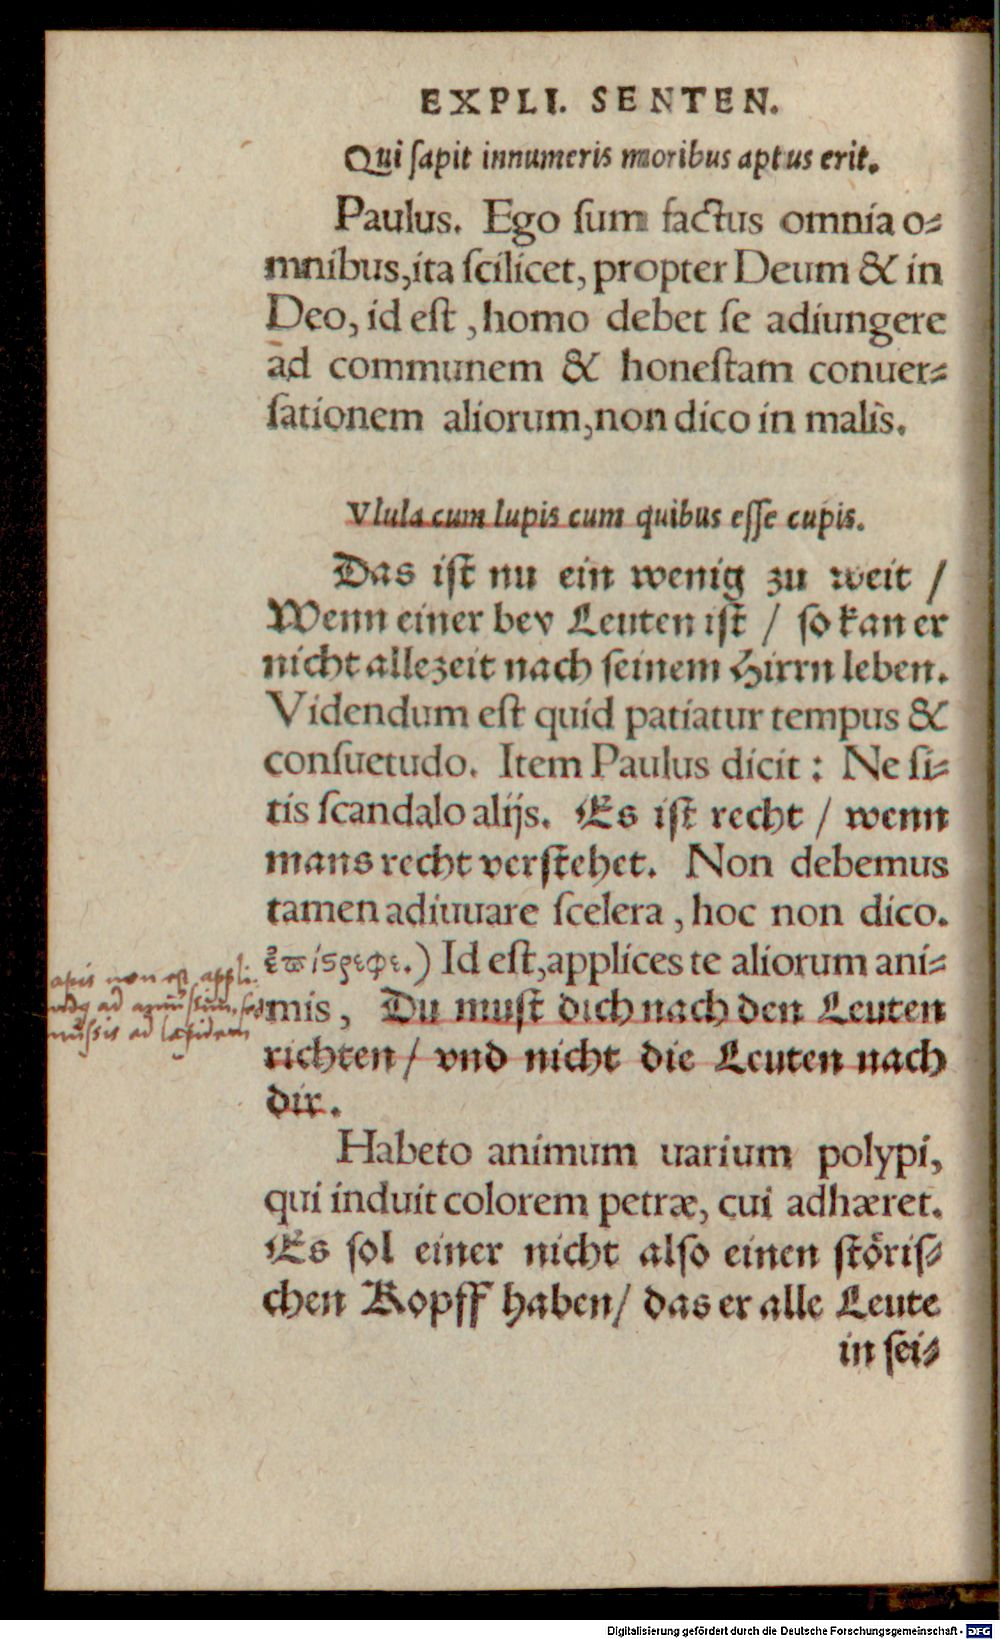 EXPLI. SENTEN.
Qui ſapit innumeris moribus aptus erit.
Paulus. Ego ſum factus omnia o-
mnibus,ita ſcilicet, propter Deum & in
Deo, id eſt, homo debet ſe adiungere
ad communem & honeſtam conuer-
ſationem aliorum,non dico in malis.
Vlula cum lupis cum quibus eſſe cupis.
Das iſt nu ein wenig zu weit /
Wenn einer bey Leuten iſt / ſo kan er
nicht allezeit nach ſeinem Hirrn leben.
Videndum eſt quid patiatur tempus &
conſuetudo. Item Paulus dicit: Ne ſi-
tis ſcandalo alijs. Es iſt recht / wenn
mans recht verſtehet. Non debemus
tamen adiuuare ſcelera, hoc non dico.
ἐπίςρεφε.) Id eſt,applices te aliorum ani-
apis non est appli-
mis, Du muſt dich nach den Leuten
ad amussum, sed
richten / vnd nicht die Leuten nach
mussis ad lapidem
dir.
Habeto animum uarium polypi,
qui induit colorem petræ, cui adhæret.
Es ſol einer nicht alſo einen ſtöriſ-
chen Kopff haben / das er alle Leute
in ſei-
Digitalisierung gefördert durch die Deutsche Forschungsgemeinschaft - DFG